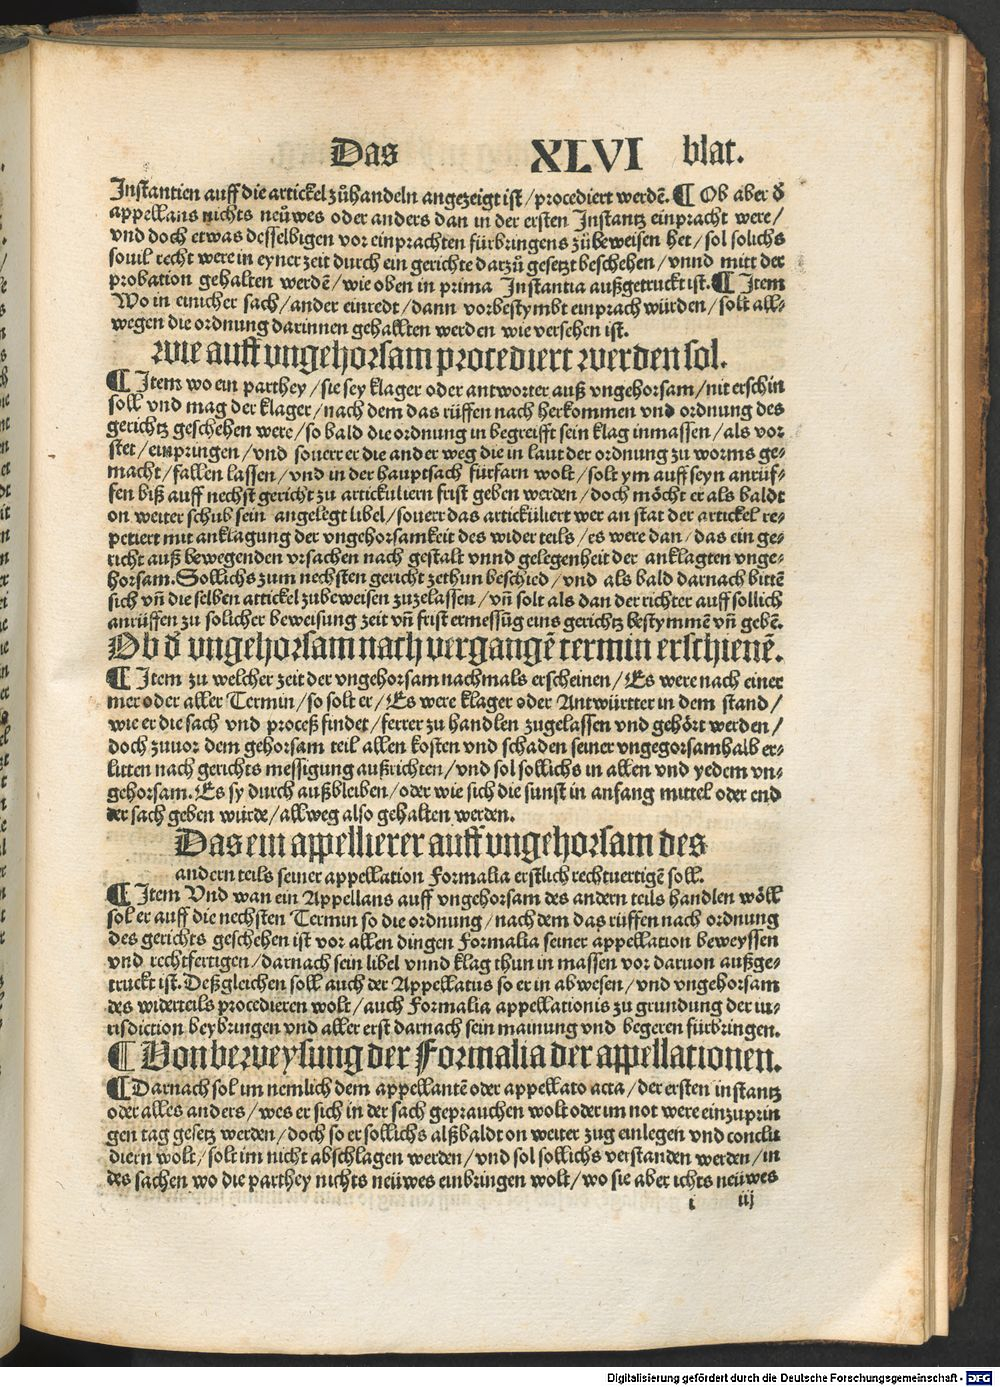 Das XLVI blat.
Instantien auff die artickel zůhandeln angezeigt ist / procediert werdē. ¶ Ob aber d̄
appellans nichts neüwes oder anders dan in der ersten Instantz einpracht were /
vnd doch etwas desselbigen vor einprachten fürbringens zůbeweisen het / sol solichs
souil recht were in eyner zeit durch ein gerichte darzů gesetzt beschehen / vnnd mitt der
probation gehalten werdē / wie oben in prima Instantia außgetruckt ist. ¶ Item
Wo in einicher sach / ander einredt / dann vorbestymbt einprach würden / solt all-
wegen die ordnung darinnen gehallten werden wie versehen ist.
Wie auff vngehorsam procediert werden sol.
¶ Item wo ein parthey / sie sey klager oder antworter auß vngehorsam / nit erschin
soll vnd mag der klager / nach dem das rüffen nach herkommen vnd ordnung des
gerichtz geschehen were / so bald die ordnung in begreifft sein klag inmassen / als vor
stet / einpringen / vnd souerr er die ander weg die in laut der ordnung zu worms ge-
macht / fallen lassen / vnd in der hauptsach fürfarn wolt / solt ym auff seyn anrüf-
fen biß auff nechst gericht zu artickuliern frist geben werden / doch möcht er als baldt
on weiter schub sein angelegt libel / souerr das artickuliert wer an stat der artickel re-
petiert mit anklagung der vngehorsamkeit des wider teils / es were dan / das ein ge-
richt auß bewegenden vrsachen nach gestalt vnnd gelegenheit der anklagten vnge-
horsam. Sollichs zum nechsten gericht zethun beschied / vnd als bald darnach bittē
sich vn̄ die selben attickel zubeweisen zuzelassen / vn̄ solt als dan der richter auff sollich
anrüffen zu solicher beweisung zeit vn̄ frist ermessūg eins gerichtz bestymmē vn̄ gebē.
Ob d̄ vngehorsam nach vergangē termin erschienē.
¶ Item zu welcher zeit der vngehorsam nachmals erscheinen / Es were nach einer
mer oder aller Termin / so solt er / Es were klager oder Antwürtter in dem stand /
wie er die sach vnd proceß findet / ferrer zu handlen zugelassen vnd gehört werden /
doch zuuor dem gehorsam teil allen kosten vnd schaden seiner vngegorsamhalb er-
litten nach gerichts messigung außrichten / vnd sol sollichs in allen vnd yedem vn-
gehorsam. Es sy durch außbleiben / oder wie sich die sunst in anfang mittel oder end
der sach geben würde / allweg also gehalten werden.
Das ein appellierer auff vngehorsam des
andern teils seiner appellation Formalia erstlich rechtuertigē soll.
¶ Item Vnd wan ein Appellans auff vngehorsam des andern teils handlen wöll
sol er auff die nechsten Termin so die ordnung / nach dem das rüffen nach ordnung
des gerichts geschehen ist vor allen dingen Formalia seiner appellation beweyssen
vnd rechtfertigen / darnach sein libel vnnd klag thun in massen vor daruon außge-
truckt ist. Deßgleichen soll auch der Appellatus so er in abwesen / vnd vngehorsam
des widerteils procedieren wolt / auch Formalia appellationis zu grundung der iu-
risdiction beybringen vnd aller erst darnach sein mainung vnd begeren fürbringen.
¶ Von beweysung der Formalia der appellationen.
¶ Darnach sol im nemlich dem appellantē oder appellato acta / der ersten instantz
oder alles anders / wes er sich in der sach geprauchen wolt oder im not were einzuprin
gen tag gesetz werden / doch so er sollichs alßbaldt on weiter zug einlegen vnd conclu
diern wolt / solt im nicht abschlagen werden / vnd sol sollichs verstanden werden / in
des sachen wo die parthey nichts neüwes einbringen wolt / wo sie aber ichts neüwes
i iij
Digitalisierung gefördert durch die Deutsche Forschungsgemeinschaft - DFG